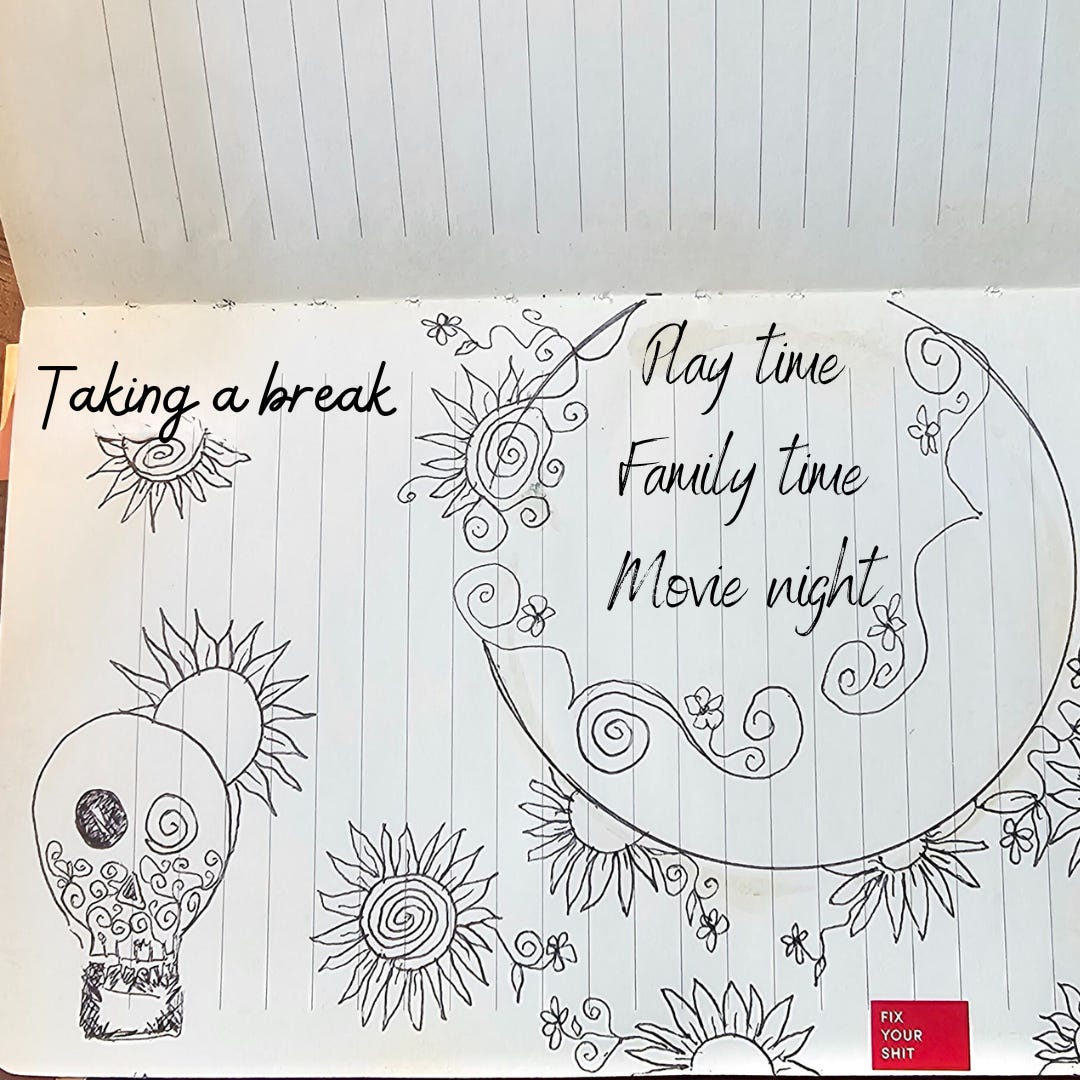 Taking a break
Play time
Family time
Movie night
FIX
YOUR
SHIT